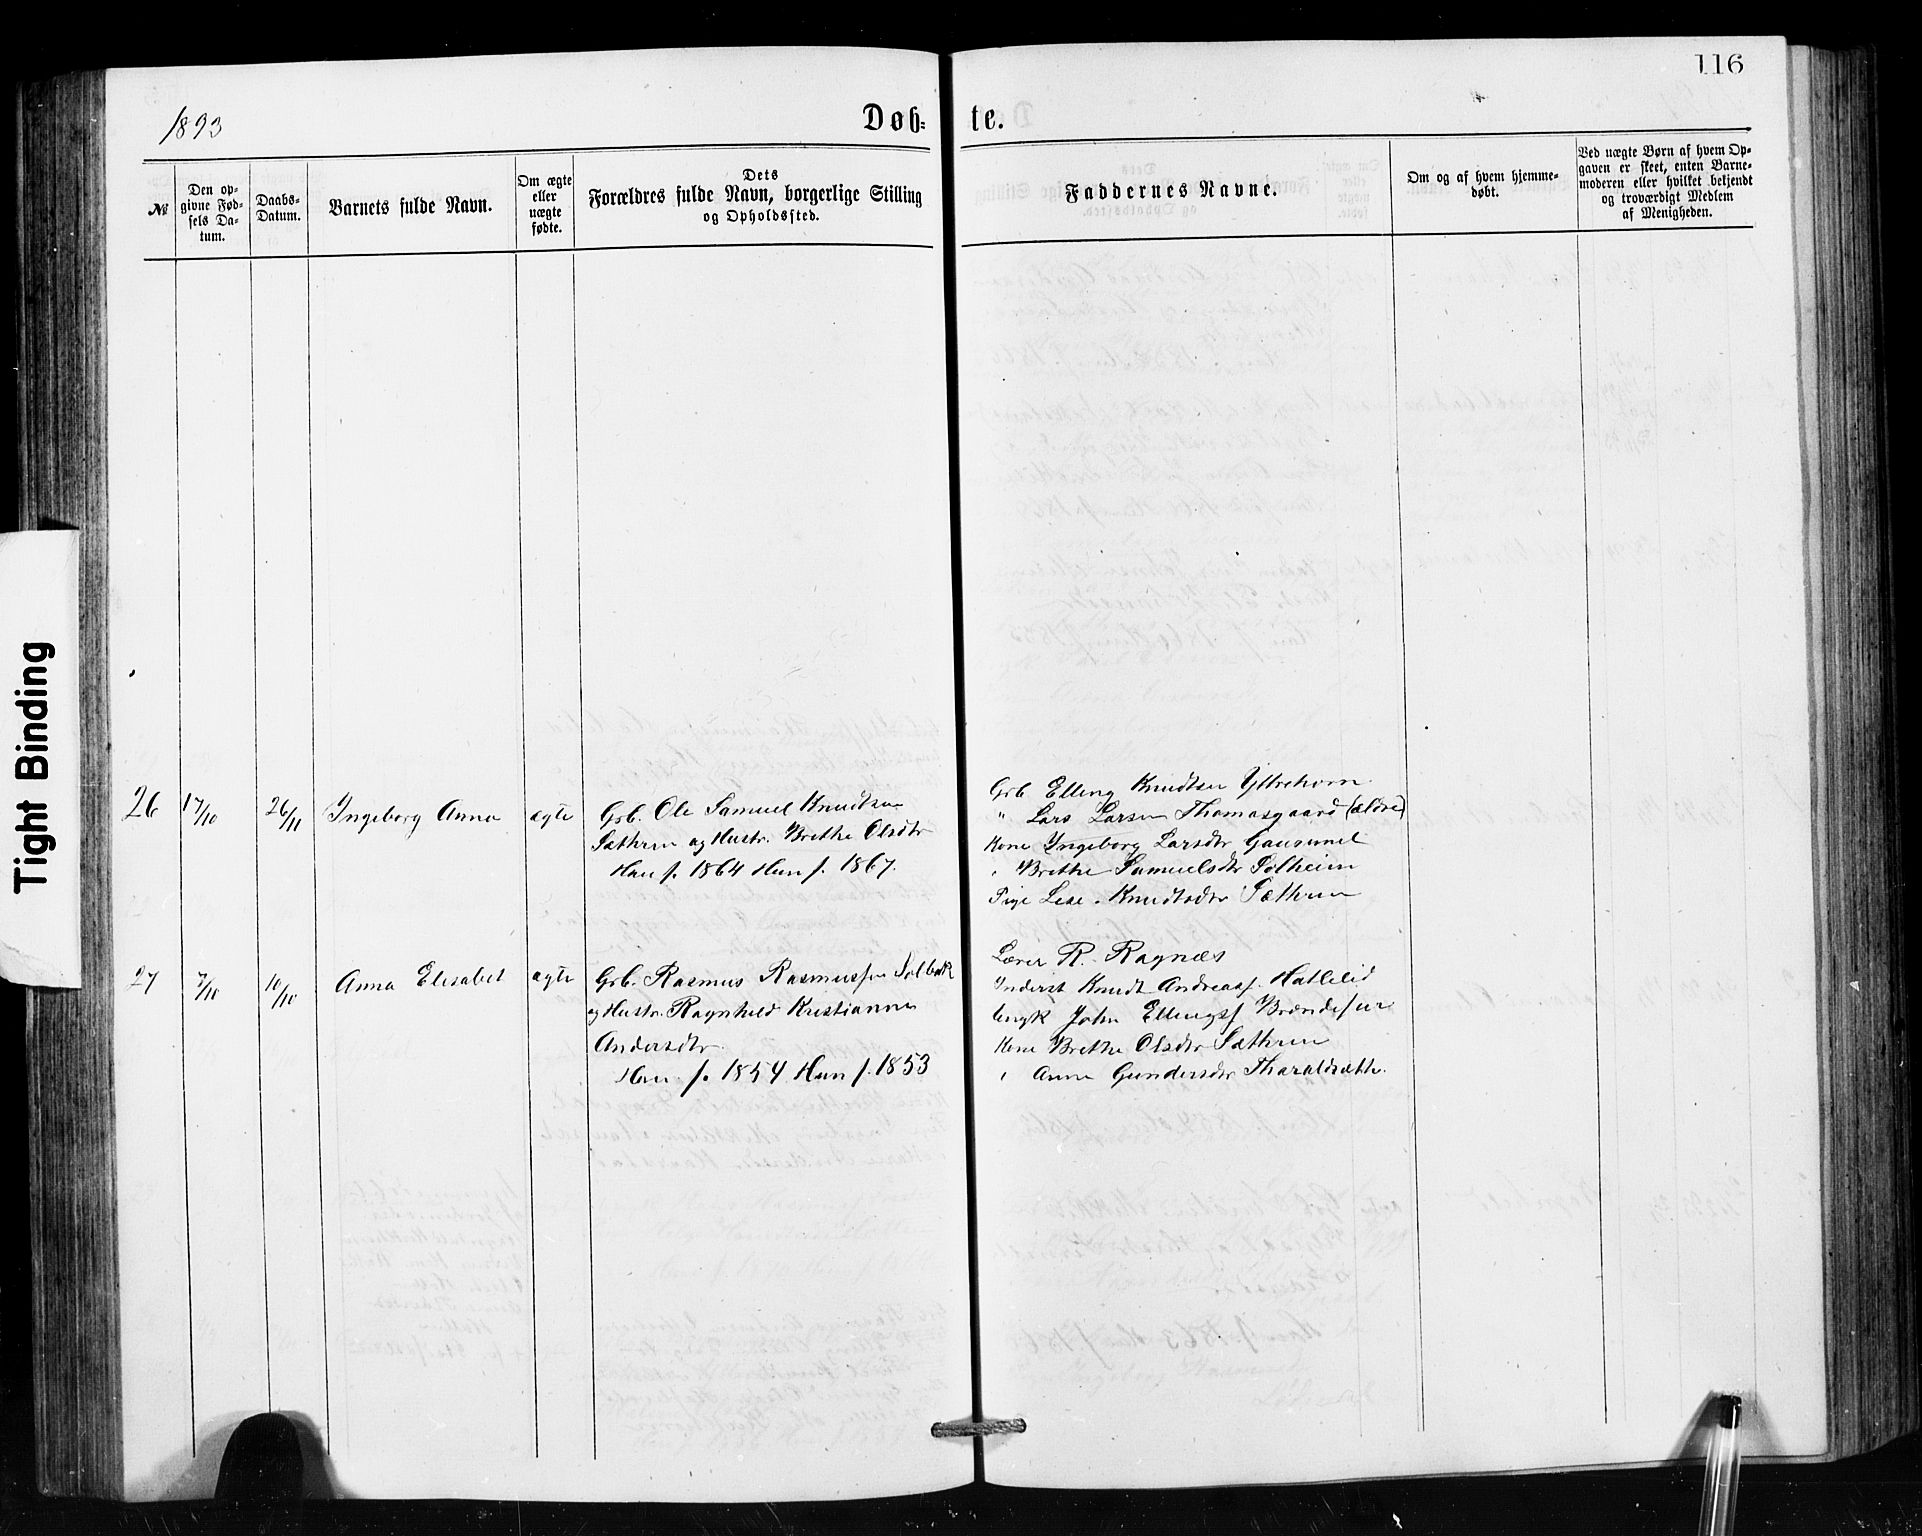 116
1893
Døb-te.
№
Den op-
givne Fød-
sels Da-
tum.
Daabs-
Datum.
Barnets fulde Navn.
Om ægte
eller
uægte
fødte.
Dets
Forældres fulde Navn, borgerlige Stilling
og Opholdssted.
Faddernes Navne.
Om og af hvem hjemme-
døbt.
Ved uægte Børn af hvem Op-
gaven er skeet, enten Barne-
moderen eller hvilket bekjendt
og troværdigt Medlem
af Menigheden.
Tight Binding
26 17/10 26/11 Ingeborg Anna ægte
Grb. Ole Samuel Knudtsen
Sæthren og Hustr. Brethe Olsdtr
Han f. 1864 Hun f. 1867.
Grb Elling Knudtsen Yttrehorn
" Lars Larsen Thomasgaard (ældre)
Kone Ingeborg Larsdtr Gausemel
" Brethe Samuelsdtr Solheim
Pige Lese Knudtsdtr Sæthren
27 7/10 10/10 Anna Elisabet ægte
Grb. Rasmus Rasmussen Solbak
og Hustr. Ragnhild Kristianna
Andersdtr.
Han f. 1854 Hun f. 1853
Lærer R. Ragnæs
Inderst Knudt Andreasf. Hatlelid
Ungk John Ellingsf
Kone Brethe Olsdtr Sæthren
" Anna Gundersdtr